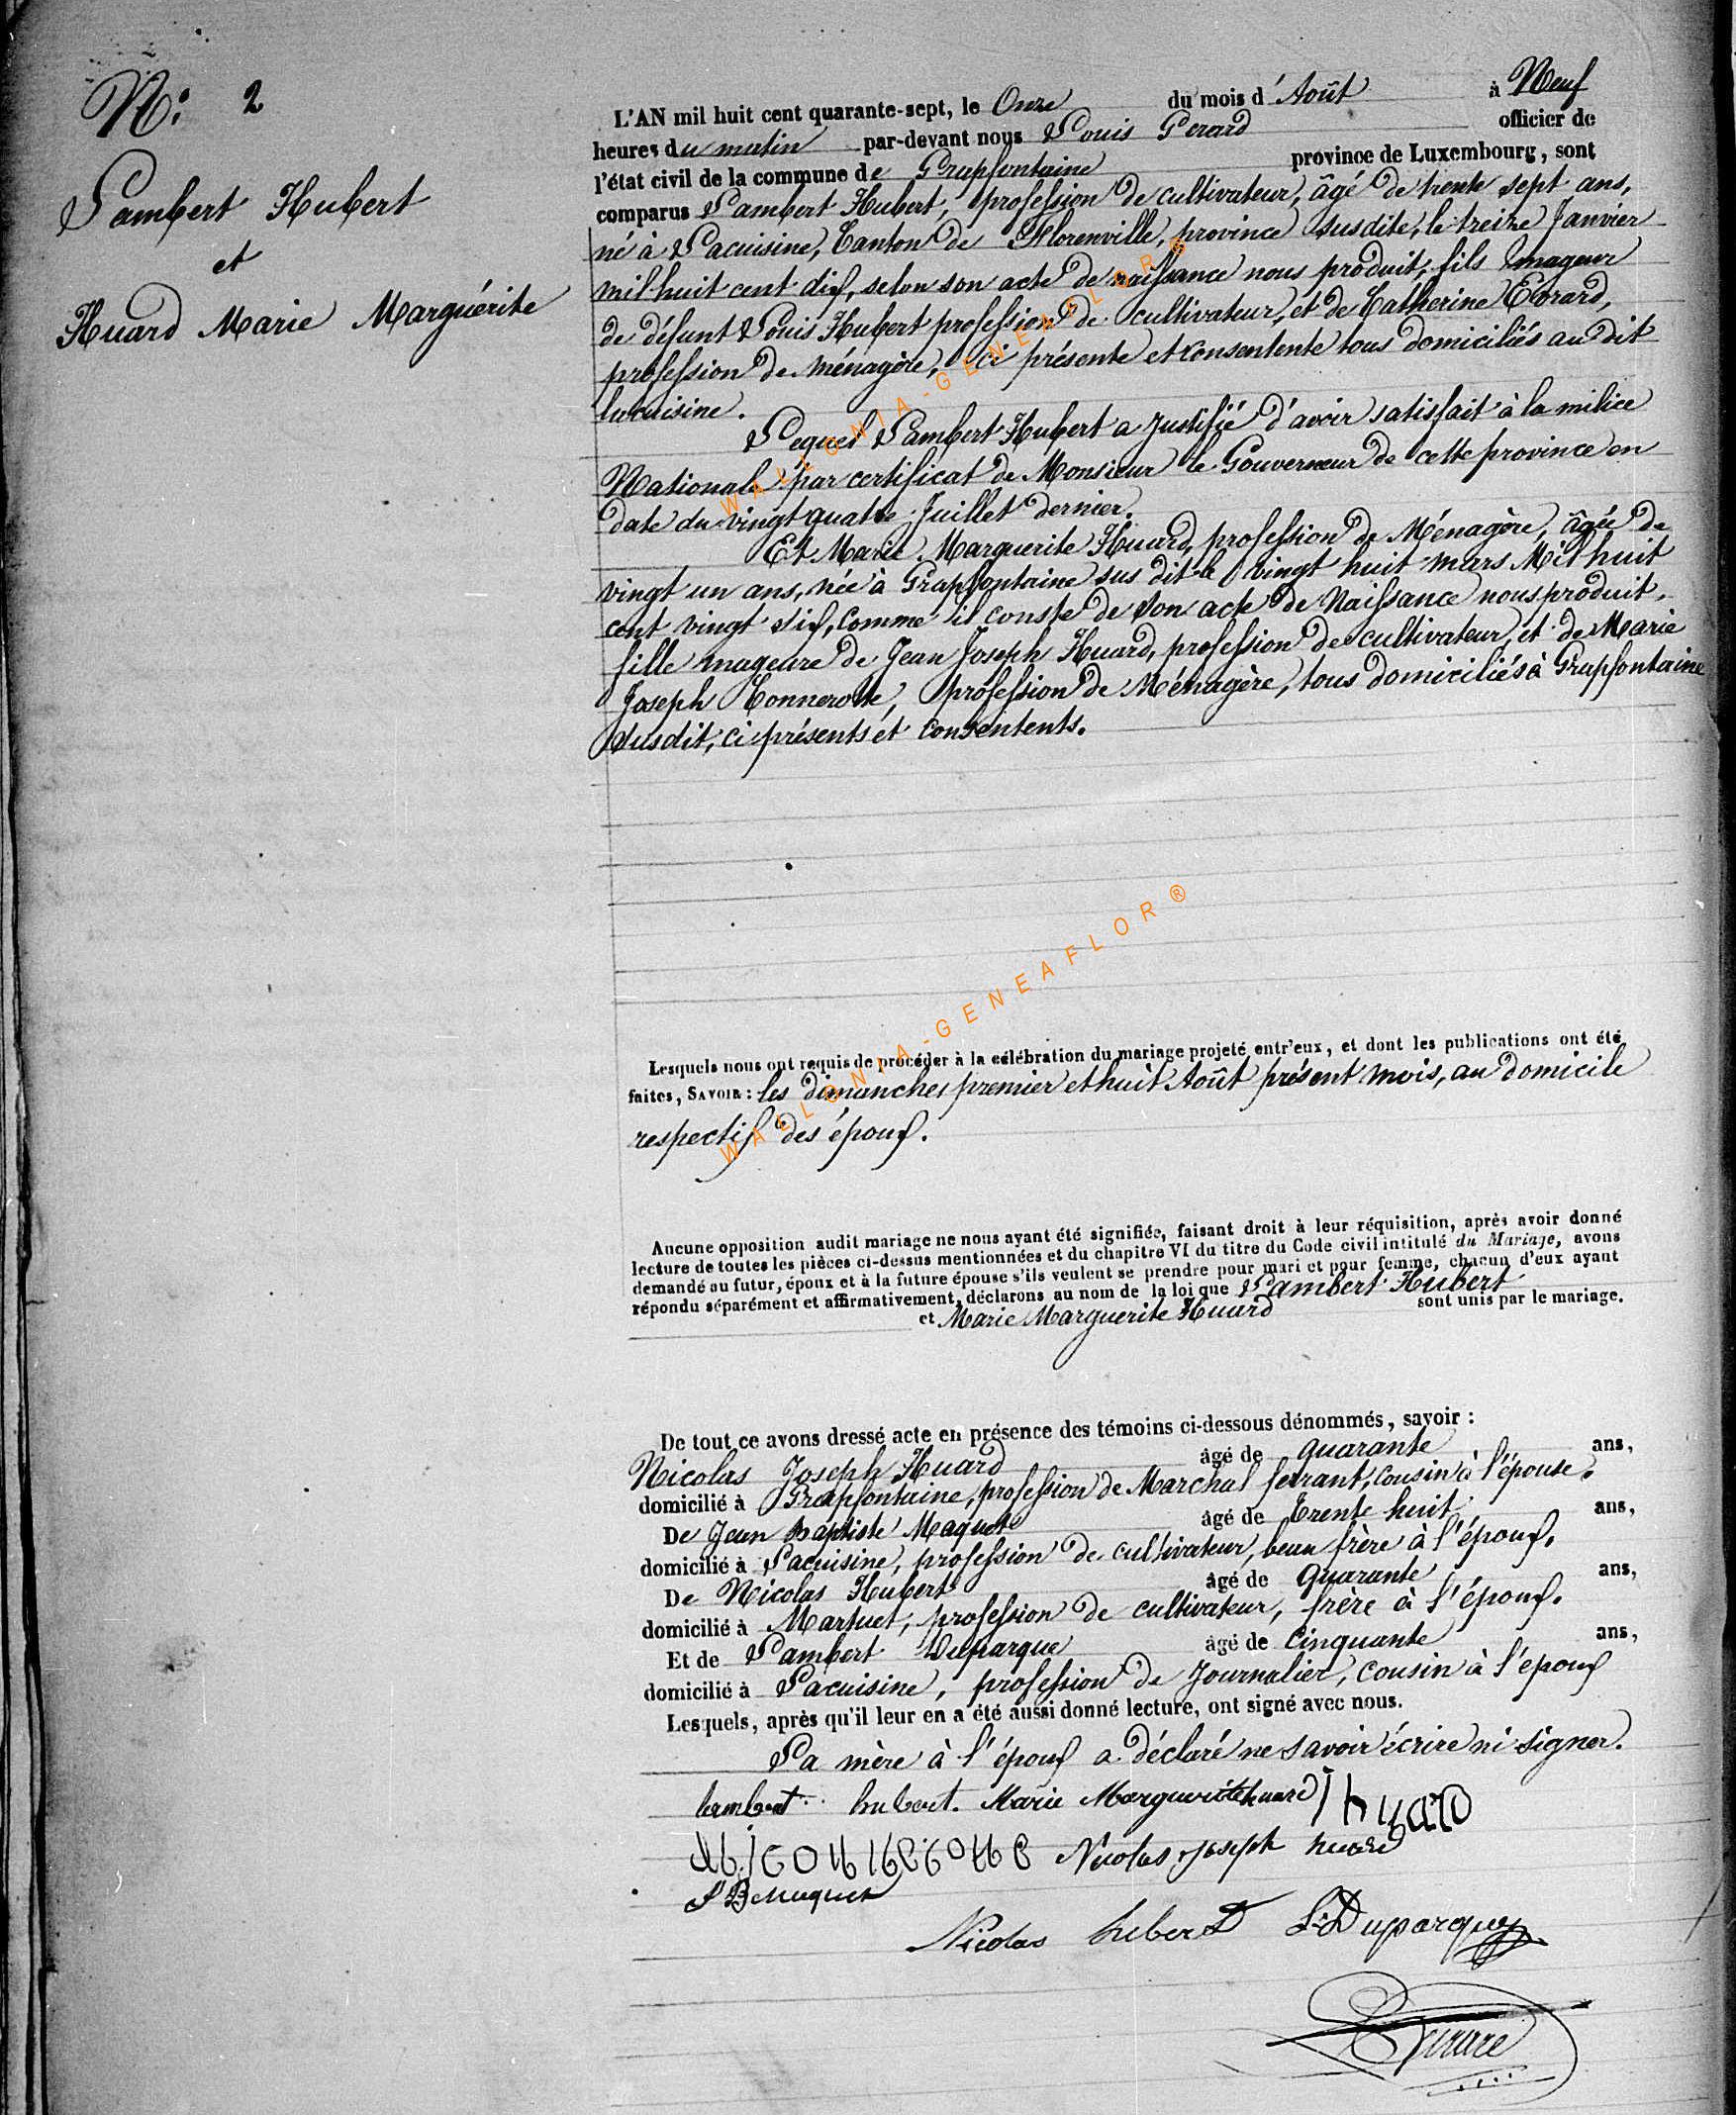 N.° 2
Lambert Hubert
et
Huard Marie Marguérite
L'AN mil huit cent quarante-sept, le Onze du mois d'Août à Neuf
heures du matin par-devant nous Louis Gerard officier de
l'état civil de la commune de Grapfontaine province de Luxembourg, sont
comparus Lambert Hubert, profession de cultivateur, âgé de trente sept ans,
né à Lacuisine, Canton de Florenville, province susdite, le treize Janvier
mil huit cent dix, selon son acte de naissance nous produit, fils mageur
de défunt Louis Hubert profession de cultivateur, et de Catherine Evrard,
profession de ménagère, ci présente et consentente tous domiciliés au dit
lacuisine.
Lequel Lambert Hubert a justifié d'avoir satisfait à la milice
Nationale par certificat de Monsieur le Gouverneur de cette province en
date du vingt quatre Juillet dernier.
Et Marie Marguerite Huard, profession de Ménagère, âgée de
vingt un ans, née à Grapfontaine sus dit le vingt huit mars Mil huit
cent vingt six, comme il conste de son acte de Naissance nous produit,
fille mageure de Jean Joseph Huard, profession de cultivateur, et de Marie
Joseph Connerotte, profession de Ménagère, tous domiciliés à Grapfontaine
susdit, ci présents et consentents.
Lesquels nous ont requis de procéder à la célébration du mariage projeté entr'eux, et dont les publications ont été
faites, SAVOIR : les dimanches premier et huit Août présent mois, au domicile
respectif des époux.
Aucune opposition audit mariage ne nous ayant été signifiée, faisant droit à leur réquisition, après avoir donné
lecture de toutes les pièces ci-dessus mentionnées et du chapitre VI du titre du Code civil intitulé du Mariage, avons
demandé au futur, époux et à la future épouse s'ils veulent se prendre pour mari et pour femme, chacun d'eux ayant
répondu séparément et affirmativement, déclarons au nom de la loi que Lambert Hubert
et Marie Marguerite Huard sont unis par le mariage.
De tout ce avons dressé acte en présence des témoins ci-dessous dénommés, savoir :
Nicolas Joseph Huard âgé de quarante ans,
domicilié à Grapfontaine, profession de Marchal ferrant, cousin à l'épouse.
De Jean Baptiste Maquet âgé de Trente huit ans,
domicilié à Lacuisine, profession de cultivateur, beau frère à l'époux.
De Nicolas Hubert âgé de Quarante ans,
domicilié à Martuet, profession de cultivateur, frère à l'époux.
Et de Lambert Duparque âgé de Cinquante ans,
domicilié à Lacuisine, profession de Journalier, cousin à l'époux
Lesquels, après qu'il leur en a été aussi donné lecture, ont signé avec nous.
La mère à l'époux a déclaré ne savoir écrire ni signer.
lambert hubert. Marie Marguerite huard J huard
Nicolas joseph huard
J B Maquet
Nicolas huberd L. Duparque
WALLONIA-GENEAFLOR®
WALLONIA-GENEAFLOR®